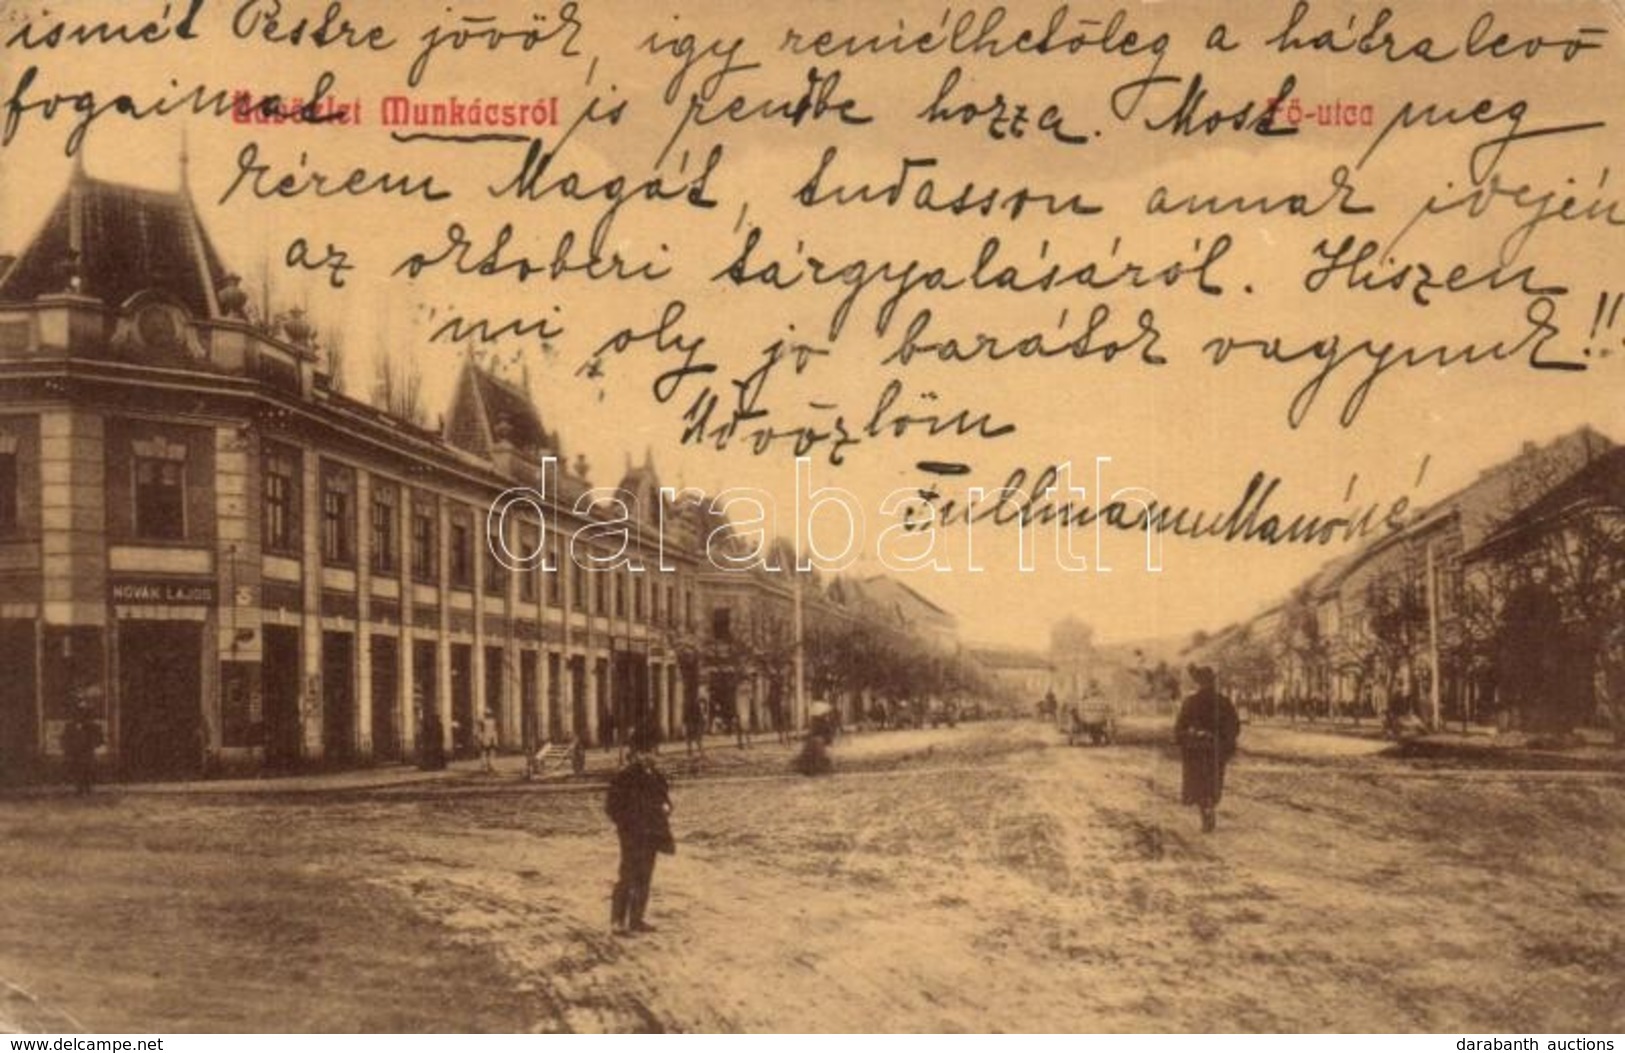 ismét Pestre jövök, igy remélhetőleg a hátralevő
fogaimat is rendbe hozza. Most meg
Üdvözlet Munkácsról
Fő-utca
kérem Magát, tudasson annak idején
az oktoberi tárgyalásáról. Hiszen
mi oly jo barátok vagyunk!!
Üdvözlöm
Manóné
darabanth
NOVÁK LAJOS
www.delcampe.net
darabanth auctions